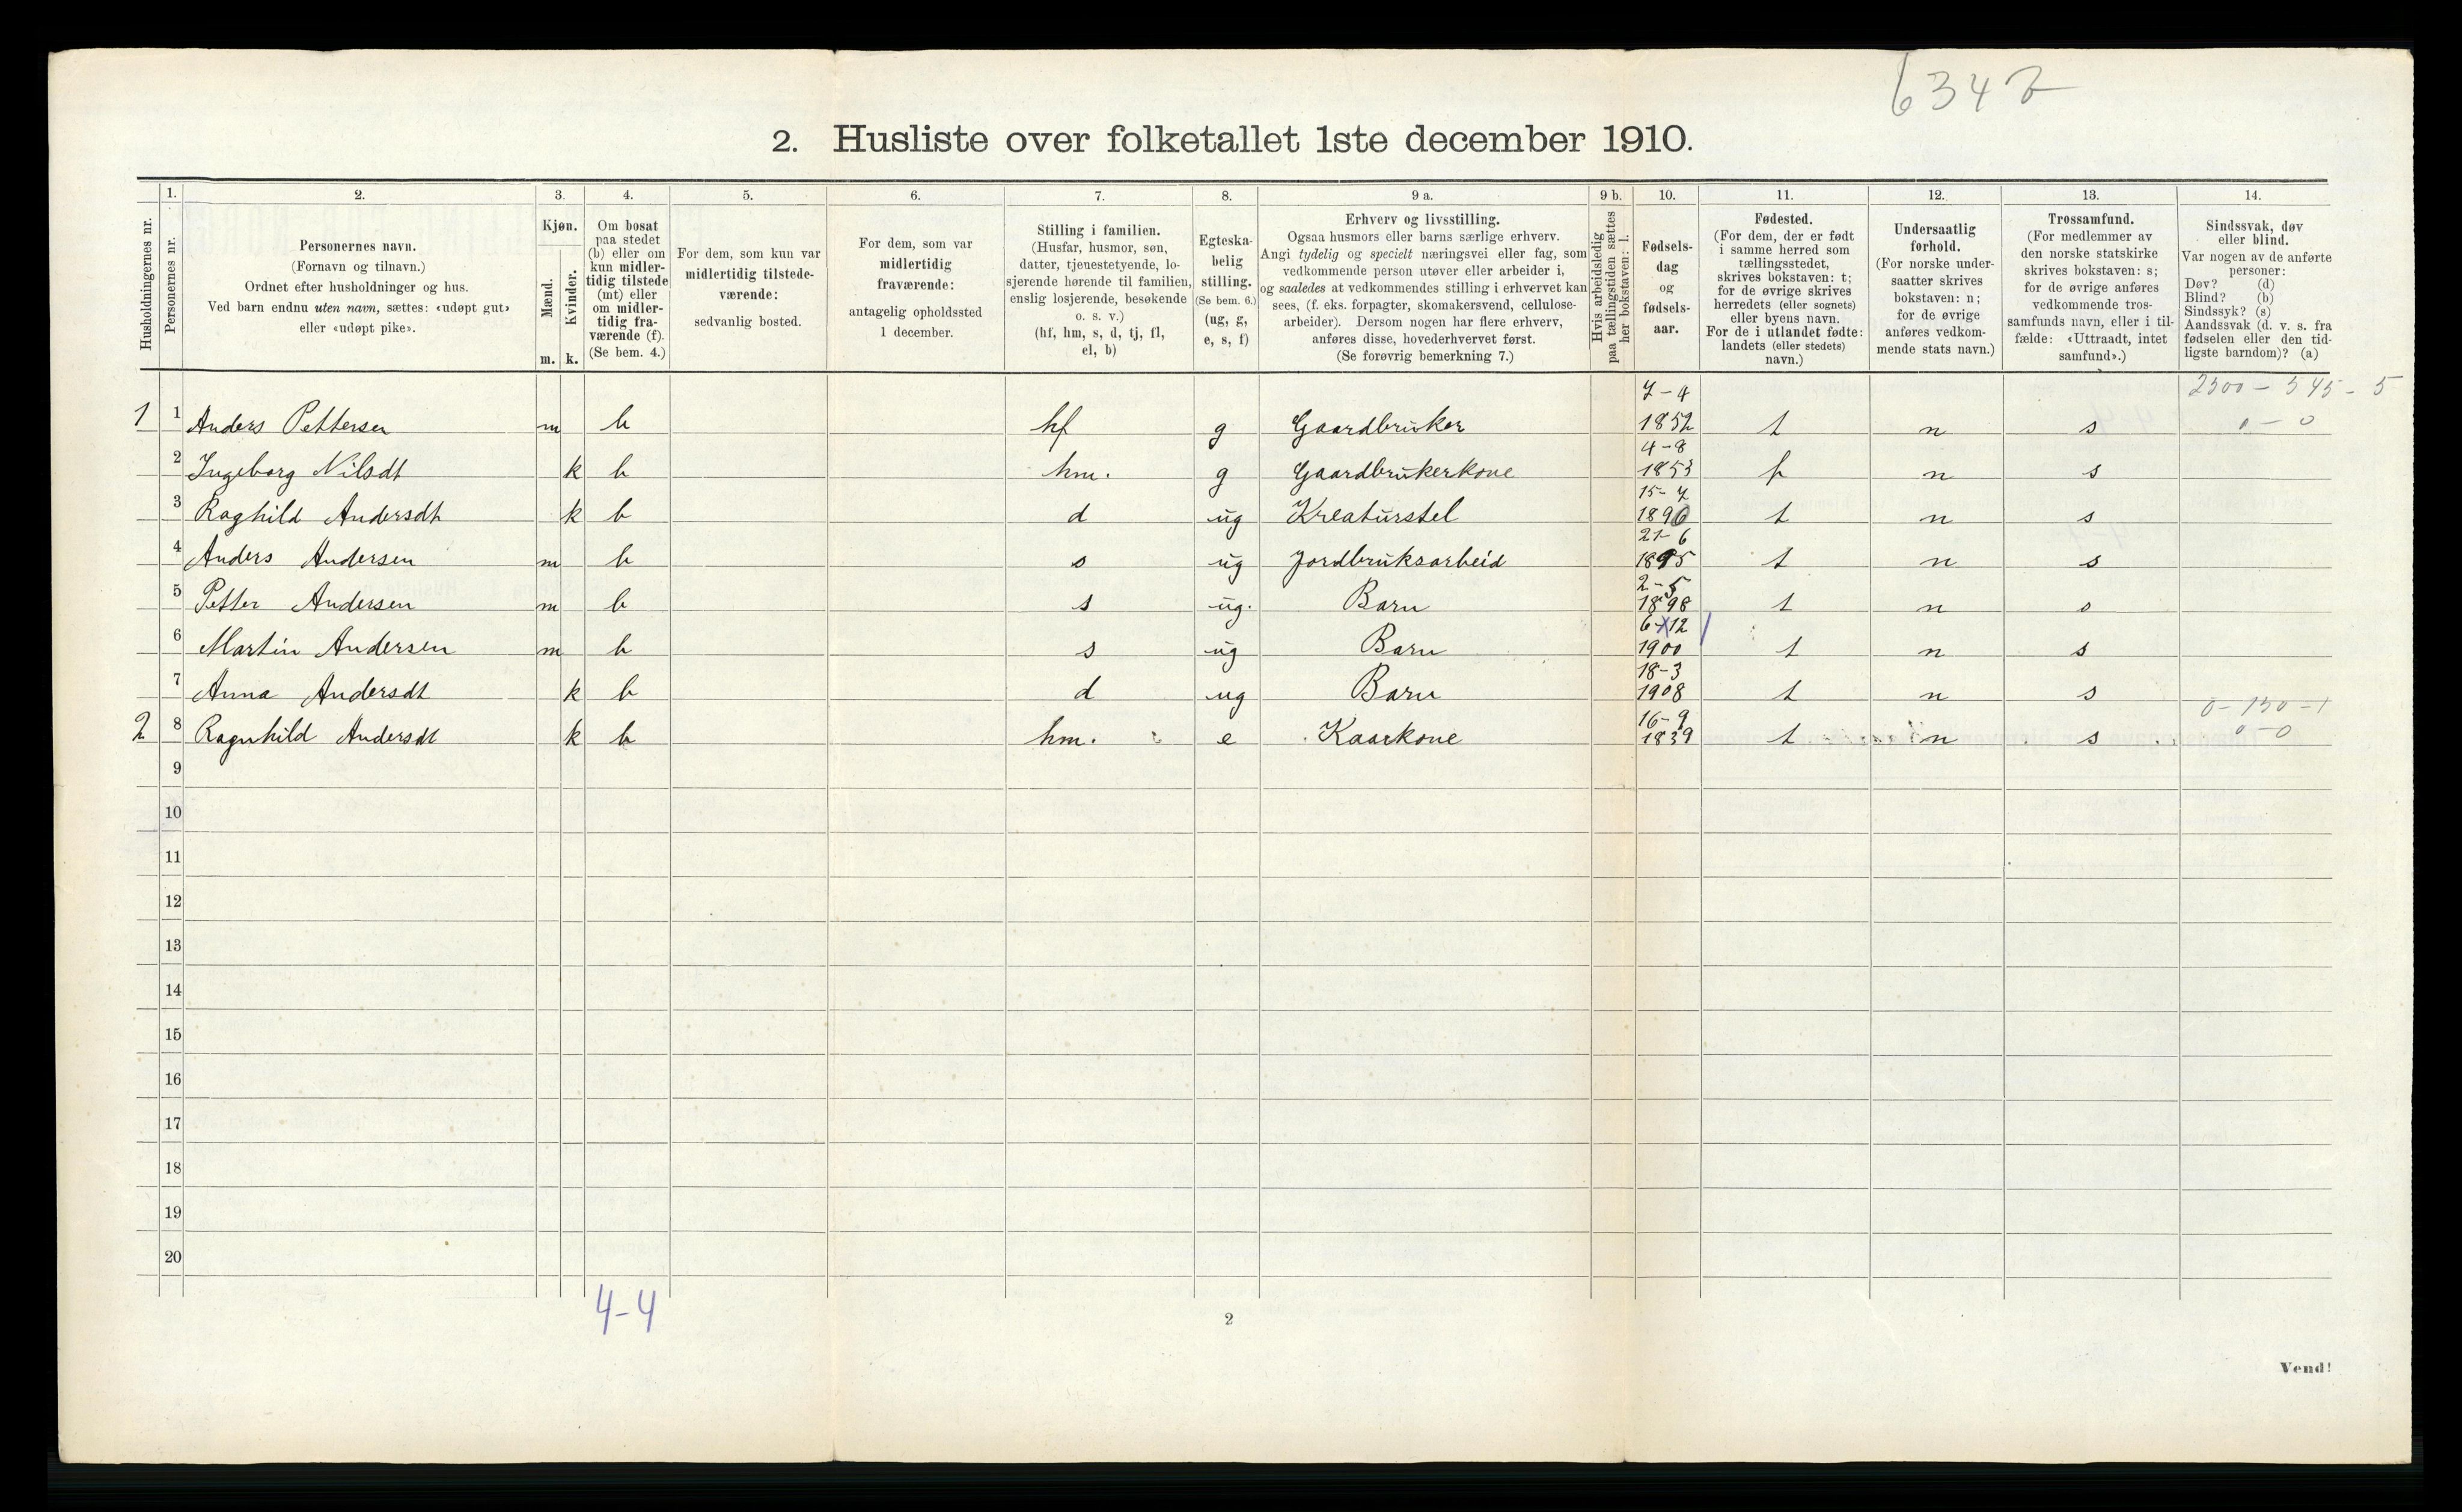 6342
2. Husliste over folketallet 1ste december 1910.
Husholdningernes nr.
1. Personernes nr.
2. Personernes navn. (Fornavn og tilnavn.) Ordnet efter husholdninger og hus. Ved barn endnu uten navn, sættes: «udøpt gut» eller «udøpt pike».
3. Kjøn. Mænd. m. Kvinder. k.
4. Om bosat paa stedet (b) eller om kun midlertidig tilstede (mt) eller om midlertidig fraværende (f). (Se bem. 4.)
5. For dem, som kun var midlertidig tilstedeværende: sedvanlig bosted.
6. For dem, som var midlertidig fraværende: antagelig opholdssted 1 december.
7. Stilling i familien. (Husfar, husmor, søn, datter, tjenestetyende, losjerende hørende til familien, enslig losjerende, besøkende o. s. v.) (hf, hm, s, d, tj, fl, el, b)
8. Egteskabelig stilling. (Se bem. 6.) (ug, g, e, s, f)
9 a. Erhverv og livsstilling. Ogsaa husmors eller barns særlige erhverv. Angi tydelig og specielt næringsvei eller fag, som vedkommende person utøver eller arbeider i, og saaledes at vedkommendes stilling i erhvervet kan sees, (f. eks. forpagter, skomakersvend, cellulosearbeider). Dersom nogen har flere erhverv, anføres disse, hovederhvervet først. (Se forøvrig bemerkning 7.)
9 b. Hvis arbeidsledig paa tællingstiden sættes her bokstaven: l.
10. Fødselsdag og fødselsaar.
11. Fødested. (For dem, der er født i samme herred som tællingsstedet, skrives bokstaven: t; for de øvrige skrives herredets (eller sognets) eller byens navn. For de i utlandet fødte: landets (eller stedets) navn.)
12. Undersaatlig forhold. (For norske undersaatter skrives bokstaven: n; for de øvrige anføres vedkommende stats navn.)
13. Trossamfund. (For medlemmer av den norske statskirke skrives bokstaven: s; for de øvrige anføres vedkommende trossamfunds navn, eller i tilfælde: «Uttraadt, intet samfund».)
14. Sindssvak, døv eller blind. Var nogen av de anførte personer: Døv? (d) Blind? (b) Sindssyk? (s) Aandssvak (d. v. s. fra fødselen eller den tidligste barndom)? (a)
2500 - 545 - 5
1 1 Anders Pettersen m b hf g Gaardbruker 7-4 1852 t n s 0 - 0
2 Ingeborg Nilsdt k b hm. g Gaardbrukerkone 4-8 1853 t n s
3 Raghild Andersdt k b d ug Kreaturstel 15-7 1890 t n s
4 Anders Andersen m b s ug Jordbruksarbeid 21-6 1895 t n s
5 Petter Andersen m b s ug. Barn 2-5 1898 t n s
6 Martin Andersen m b s ug Barn 6-12 1900 t n s
7 Anna Andersdt k b d ug Barn 18-3 1908 t n s
0 - 150 - 1
2 8 Ragnhild Andersdt k b hm. e Kaarkone 16-9 1839 t n s 0-0
9
10
11
12
13
14
15
16
17
18
19
20
4-4
2
Vend!